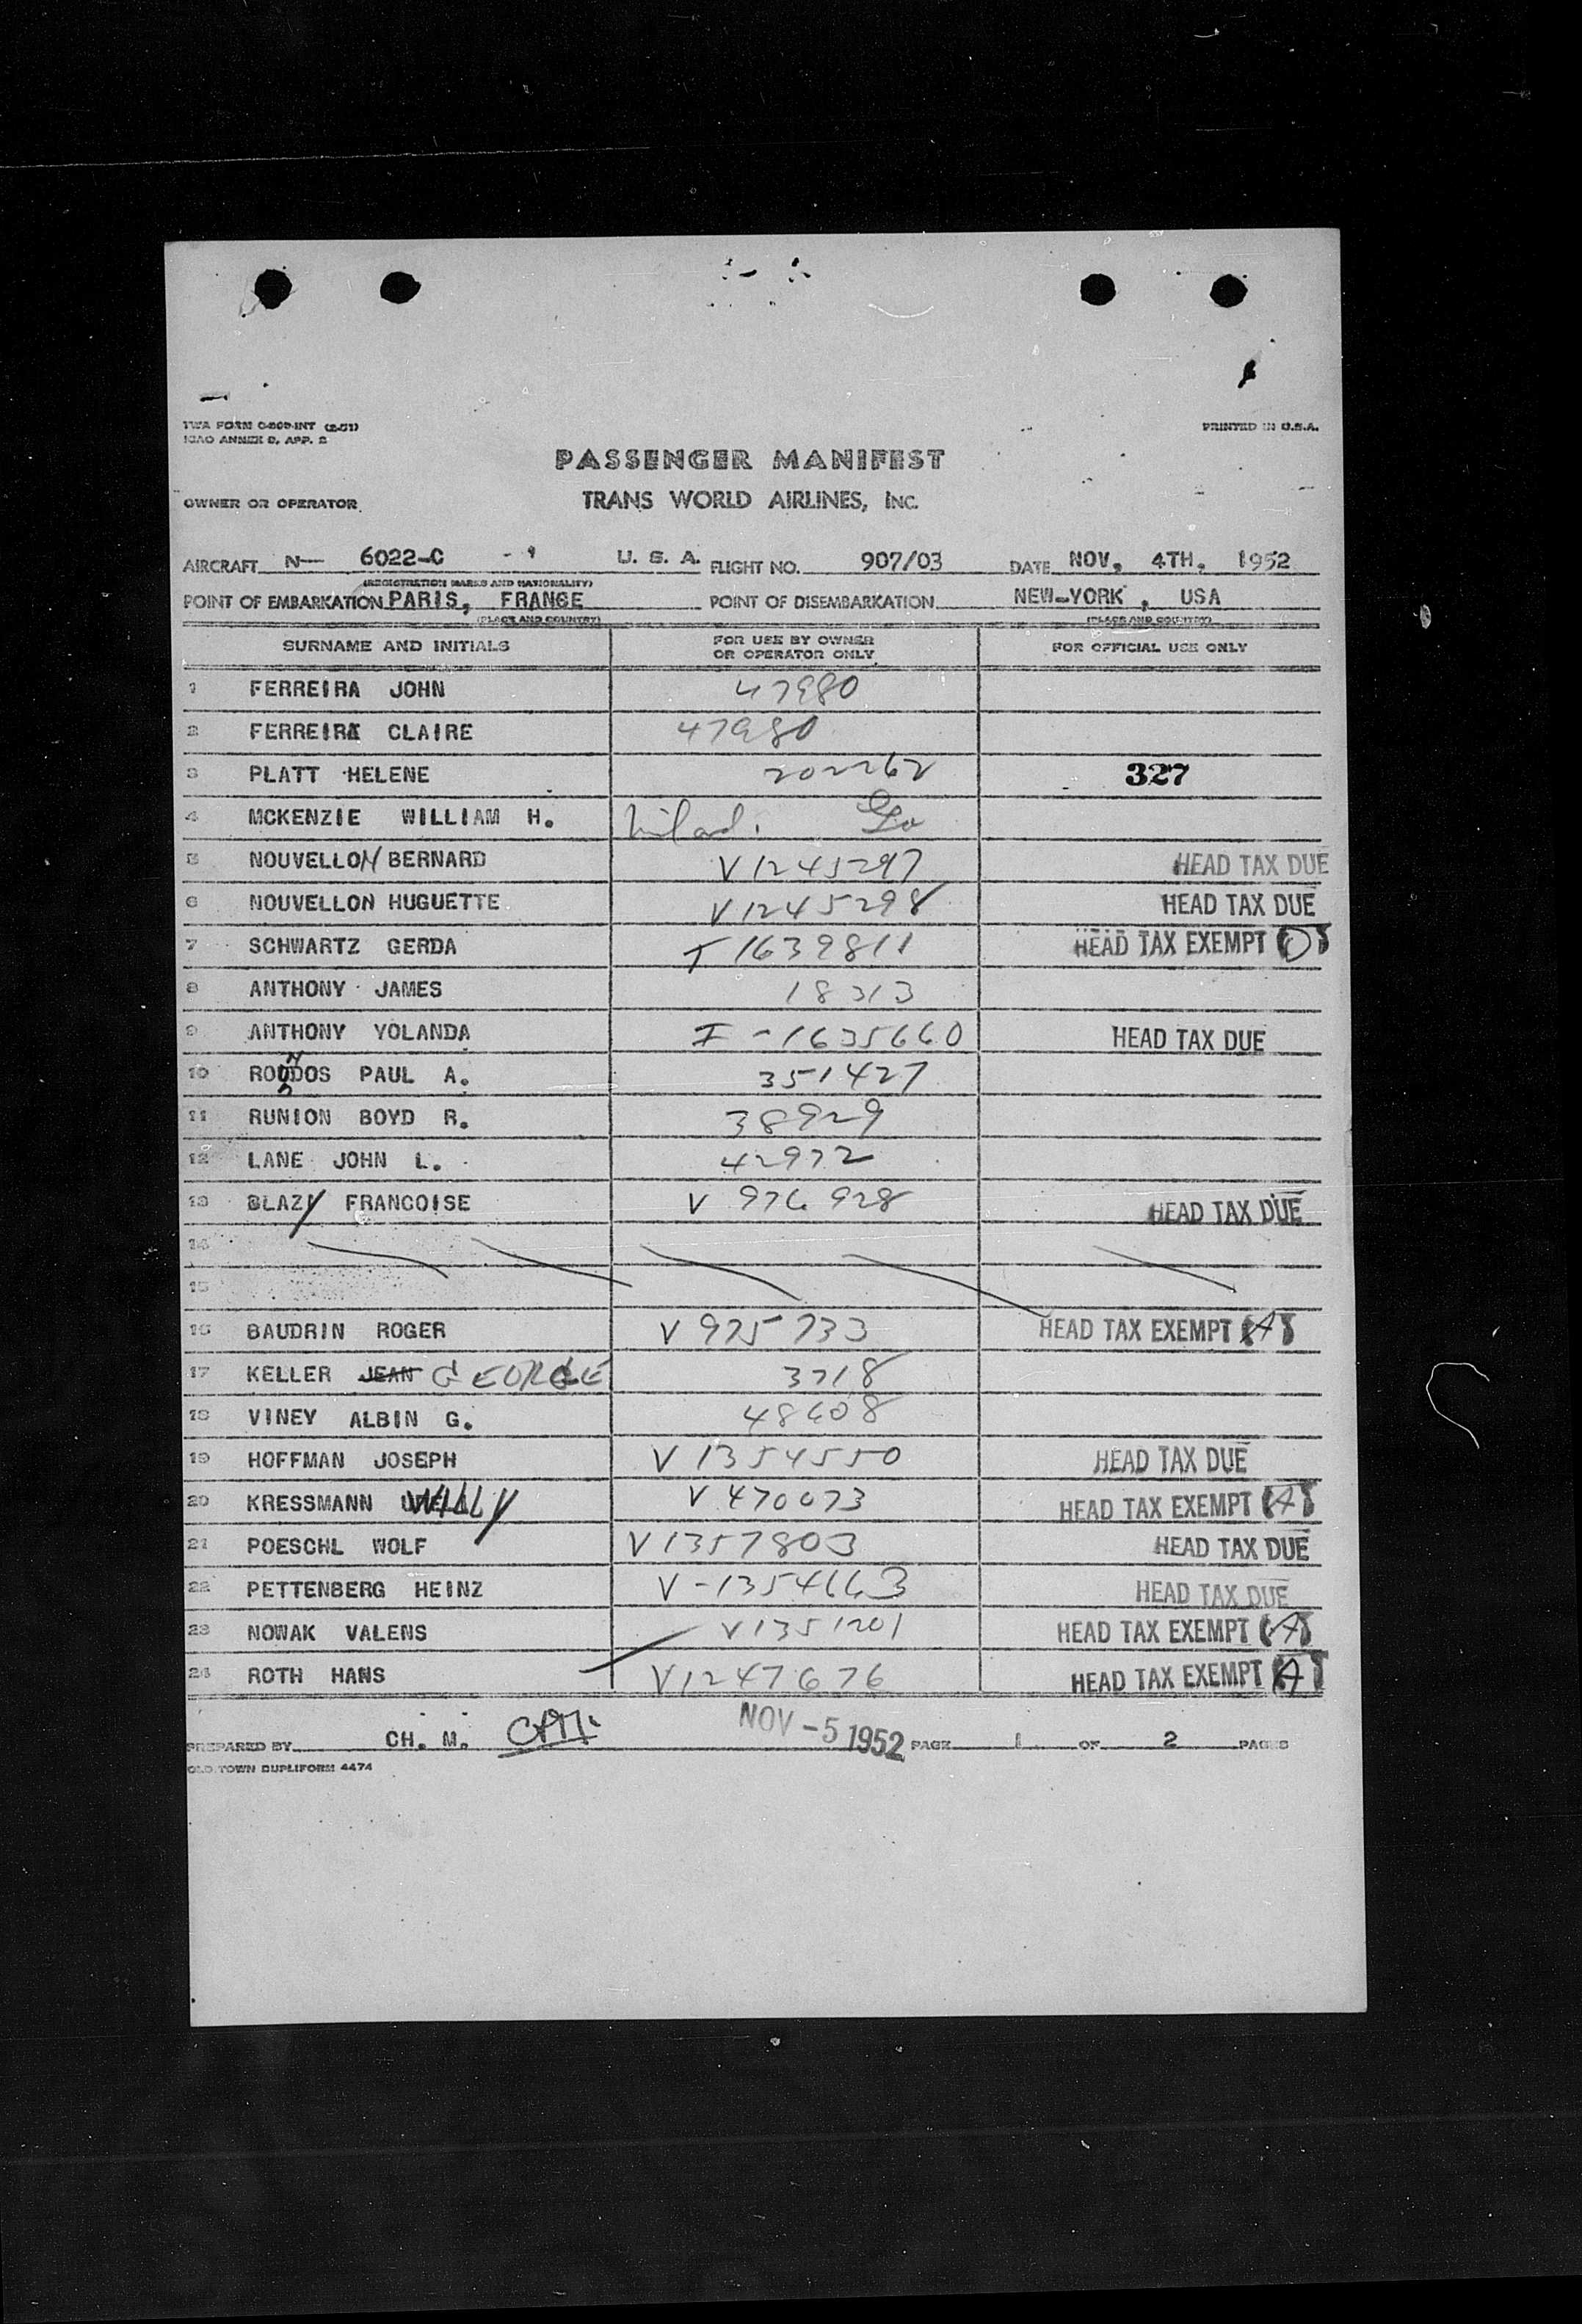 TWA FORM O-809-INT (2-51)
ICAO ANNEX 9, APP. 2
PRINTED IN U.S.A.
PASSENGER MANIFEST
OWNER OR OPERATOR TRANS WORLD AIRLINES, INC.
AIRCRAFT N— 6022-C U. S. A. FLIGHT NO. 907/03 DATE NOV, 4TH. 1952
(REGISTRATION MARKS AND NATIONALITY)
POINT OF EMBARKATION PARIS, FRANCE POINT OF DISEMBARKATION NEW-YORK, USA
(PLACE AND COUNTRY) (PLACE AND COUNTRY)
SURNAME AND INITIALS FOR USE BY OWNER OR OPERATOR ONLY FOR OFFICIAL USE ONLY
1 FERREIRA JOHN 47980
2 FERREIRA CLAIRE 47980
3 PLATT HELENE 202262 327
4 MCKENZIE WILLIAM H.
5 NOUVELLON BERNARD V 1245297 HEAD TAX DUE
6 NOUVELLON HUGUETTE V 1245298 HEAD TAX DUE
7 SCHWARTZ GERDA I 1639811 HEAD TAX EXEMPT (D)
8 ANTHONY JAMES 18313
9 ANTHONY YOLANDA I-1635660 HEAD TAX DUE
10 PAUL A. 351427
11 RUNION BOYD R. 38929
12 LANE JOHN L. 42972
13 BLAZY FRANCOISE V 976928 HEAD TAX DUE
14
15
16 BAUDRIN ROGER V 975733 HEAD TAX EXEMPT (A)
17 KELLER JEAN GEORGE 3718
18 VINEY ALBIN G. 48608
19 HOFFMAN JOSEPH V 1354550 HEAD TAX DUE
20 KRESSMANN WILLY V 470073 HEAD TAX EXEMPT (A)
21 POESCHL WOLF V 1357803 HEAD TAX DUE
22 PETTENBERG HEINZ V-1354663 HEAD TAX DUE
23 NOWAK VALENS V 1351201 HEAD TAX EXEMPT (A)
24 ROTH HANS V 1247676 HEAD TAX EXEMPT (A)
PREPARED BY CH. M. NOV -5 1952 PAGE 1 OF 2 PAGES
OLD TOWN DUPLIFORM 4474